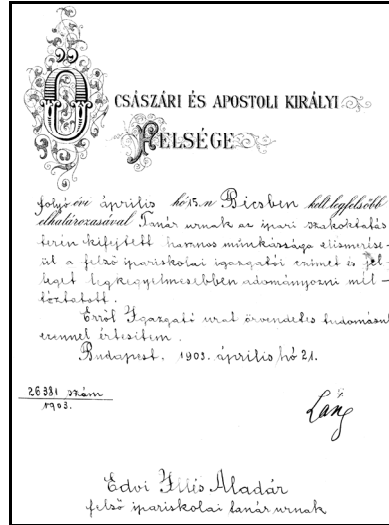 Ő CSÁSZÁRI ÉS APOSTOLI KIRÁLYI
FELSÉGE
folyó évi április hó 15.n Bécsben kelt legfelsőbb
elhatározásával Tanár urnak az ipari szakoktatás
terén kifejtett hasznos munkássága elismerésé-
ül a felső ipariskolai igazgatói czimet és jel-
leget legkegyelmesebben adományozni mél-
tóztatott.
Erről Igazgató urat örvendetes tudomásul
ezennel értesitem.
Budapest. 1903. április hó 21.
26381 szám
1903.
Láng
Edvi Illés Aladár
felső ipariskolai tanár urnak